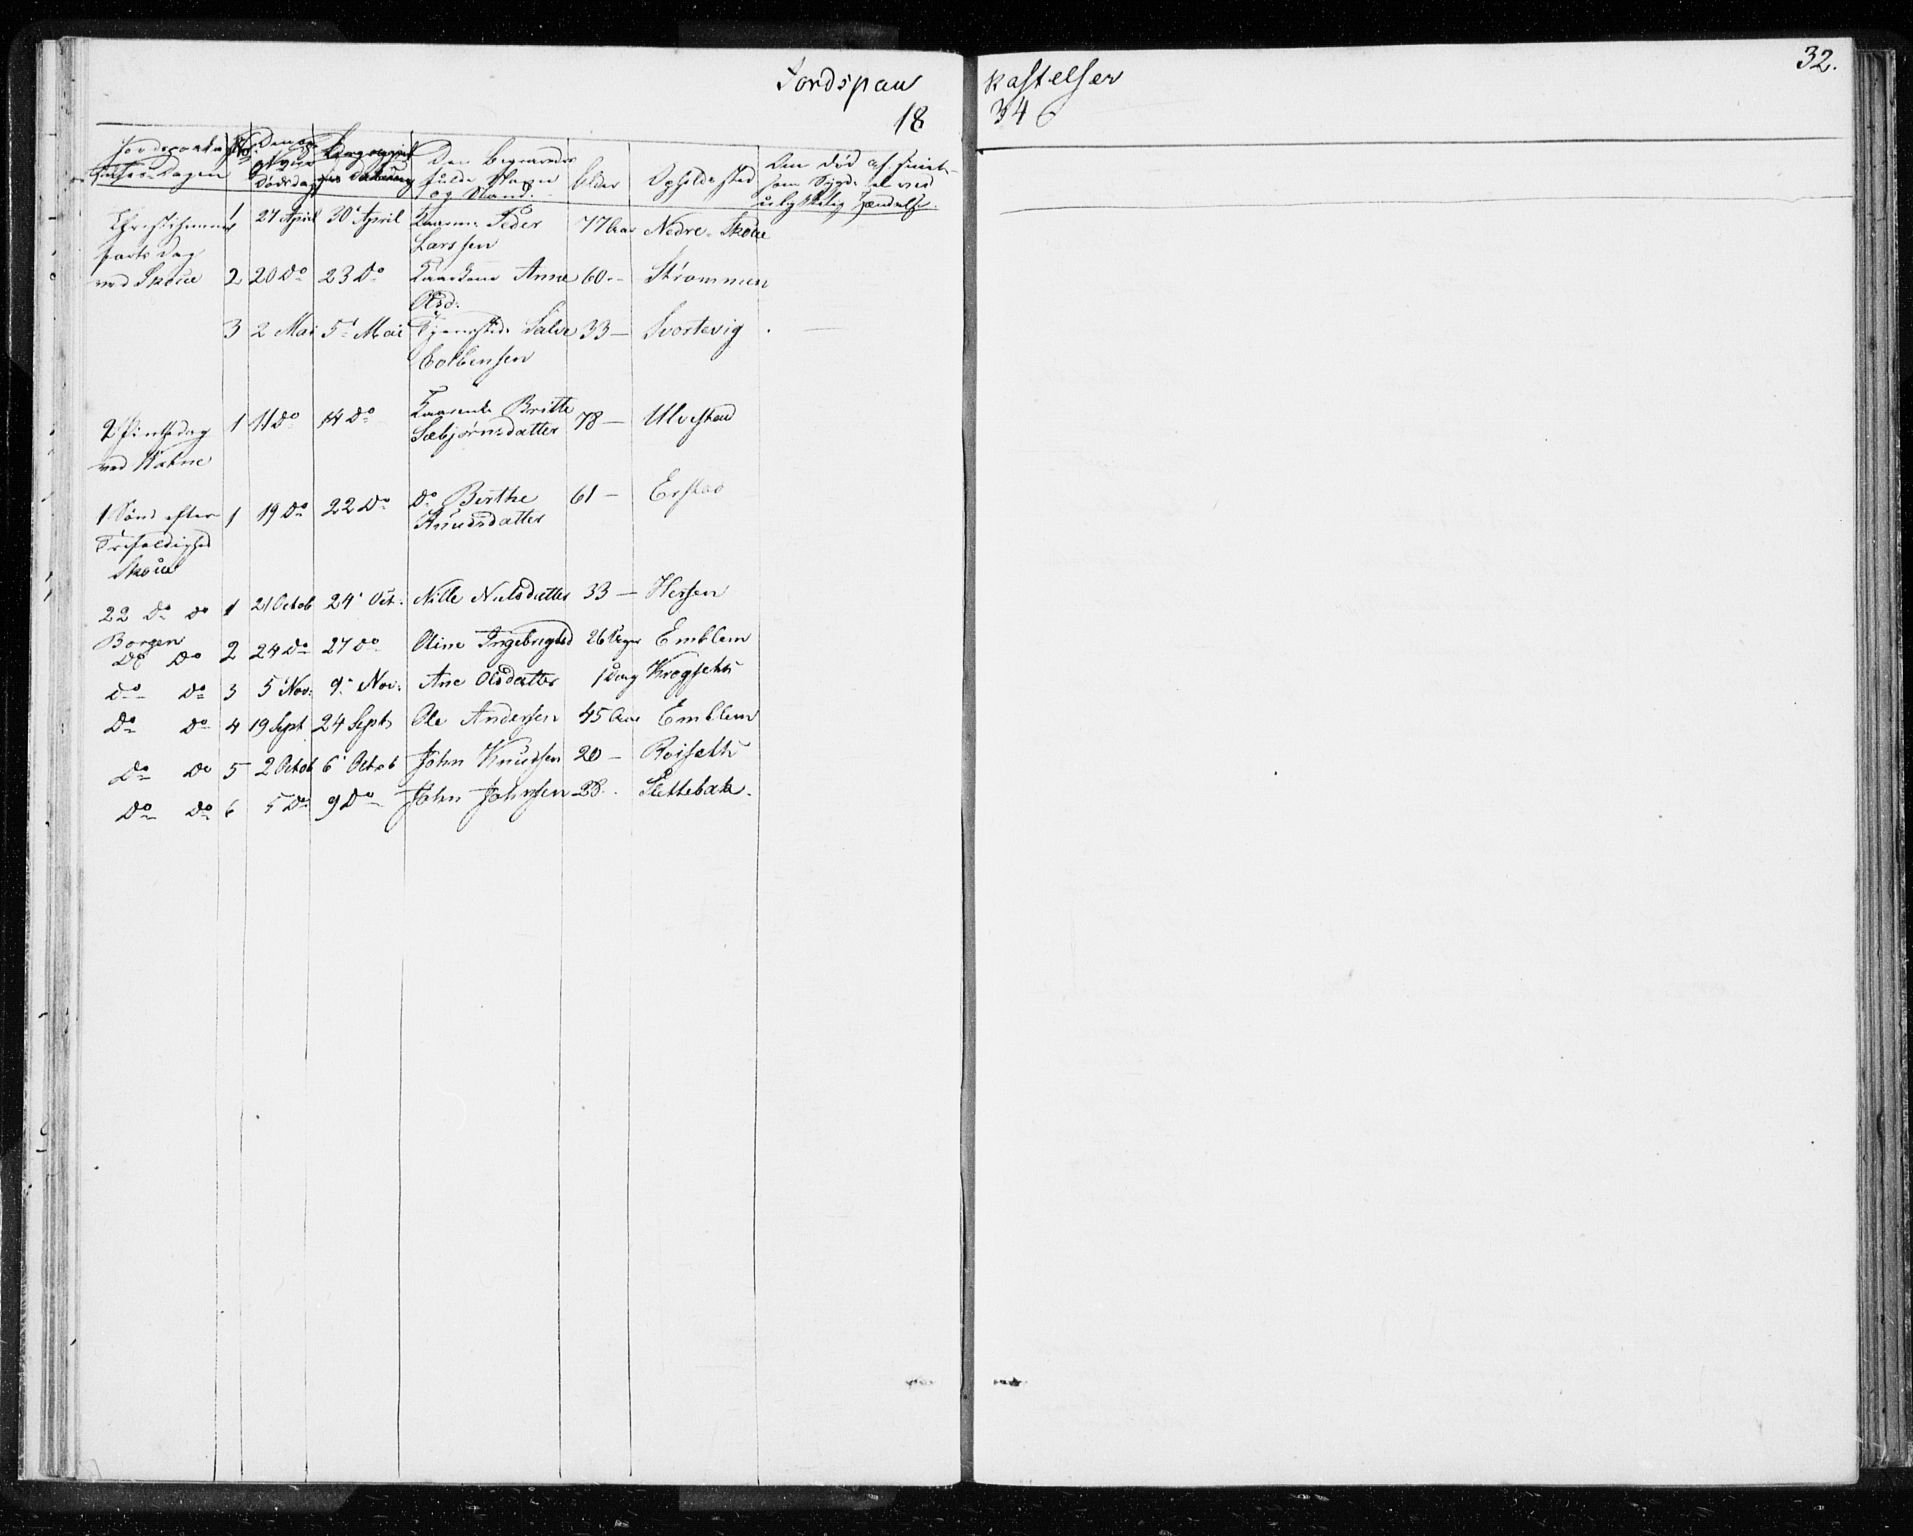 Jordspaa kastelser
18 34
32.
Jordspaaka No Den Begravedes
stelses Dagen Dødsdag fulde Navn Alder Opholdssted Om død af smit-
og Stand. som Sygd. el. ved
ulykkelig Hændelse.
Christihimmel 1 27 April 30 April Peder 77 Aar Nedre-Skoue
farts Dag Larssen
ved Skoue 2 20 Do 23 Do Anne 60 - Strømmen
Olsd.
3 2 Mai 5 Mai Salve 33 - Svortevig
Colbensen
2 Pintsedag 1 11 Do 14 Do Britte 78 - Ulvestad
ved Sæbjørnsdatter
1 Sønd efter 1 19 Do 22 Do Do Berthe 61 - Erstad
Trefoldighed Knudsdatter
Skoue
22 Do Do 1 21 Octob 24 Oct. Nille Nielsdatter 33 - Hessen
Borgen
Do Do 2 24 Do 27 Do Oline Ingebrigtsd 26 Uger Emblem
Do Do 3 5 Nov. 9 Nov. Ane Olsdatter 1 Dag Krogseth
Do Do 4 19 Sept 24 Sept Ole Andersen 45 Aar Emblem
Do Do 5 2 Octob 6 Octob John Knudsen 20 - Roiseth
Do Do 6 5 Do 9 Do John Johnsen 28 - Slettebak.